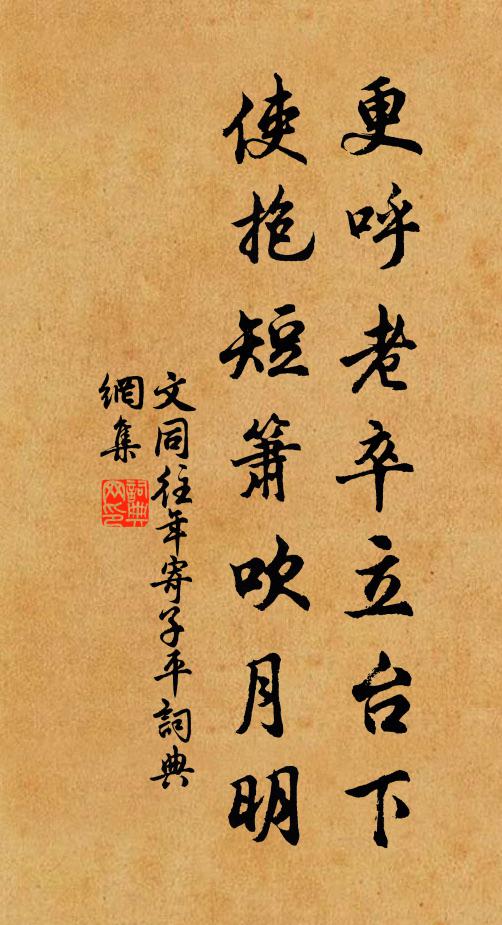 更呼老卒立台下
使抱短箫吹月明
文同往年寄子平詞典
網集
詞典
网印